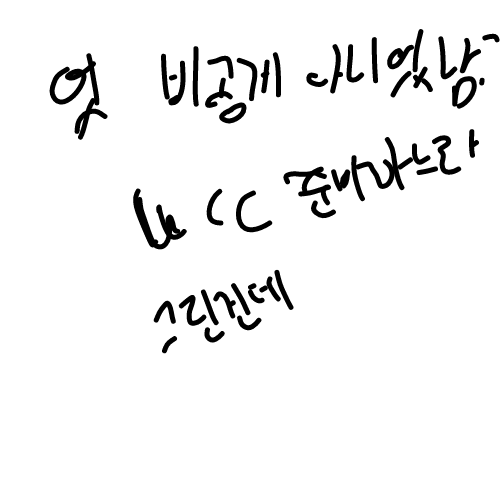 엇 비공게 아니엿남
CC 준비하느라
그린건데